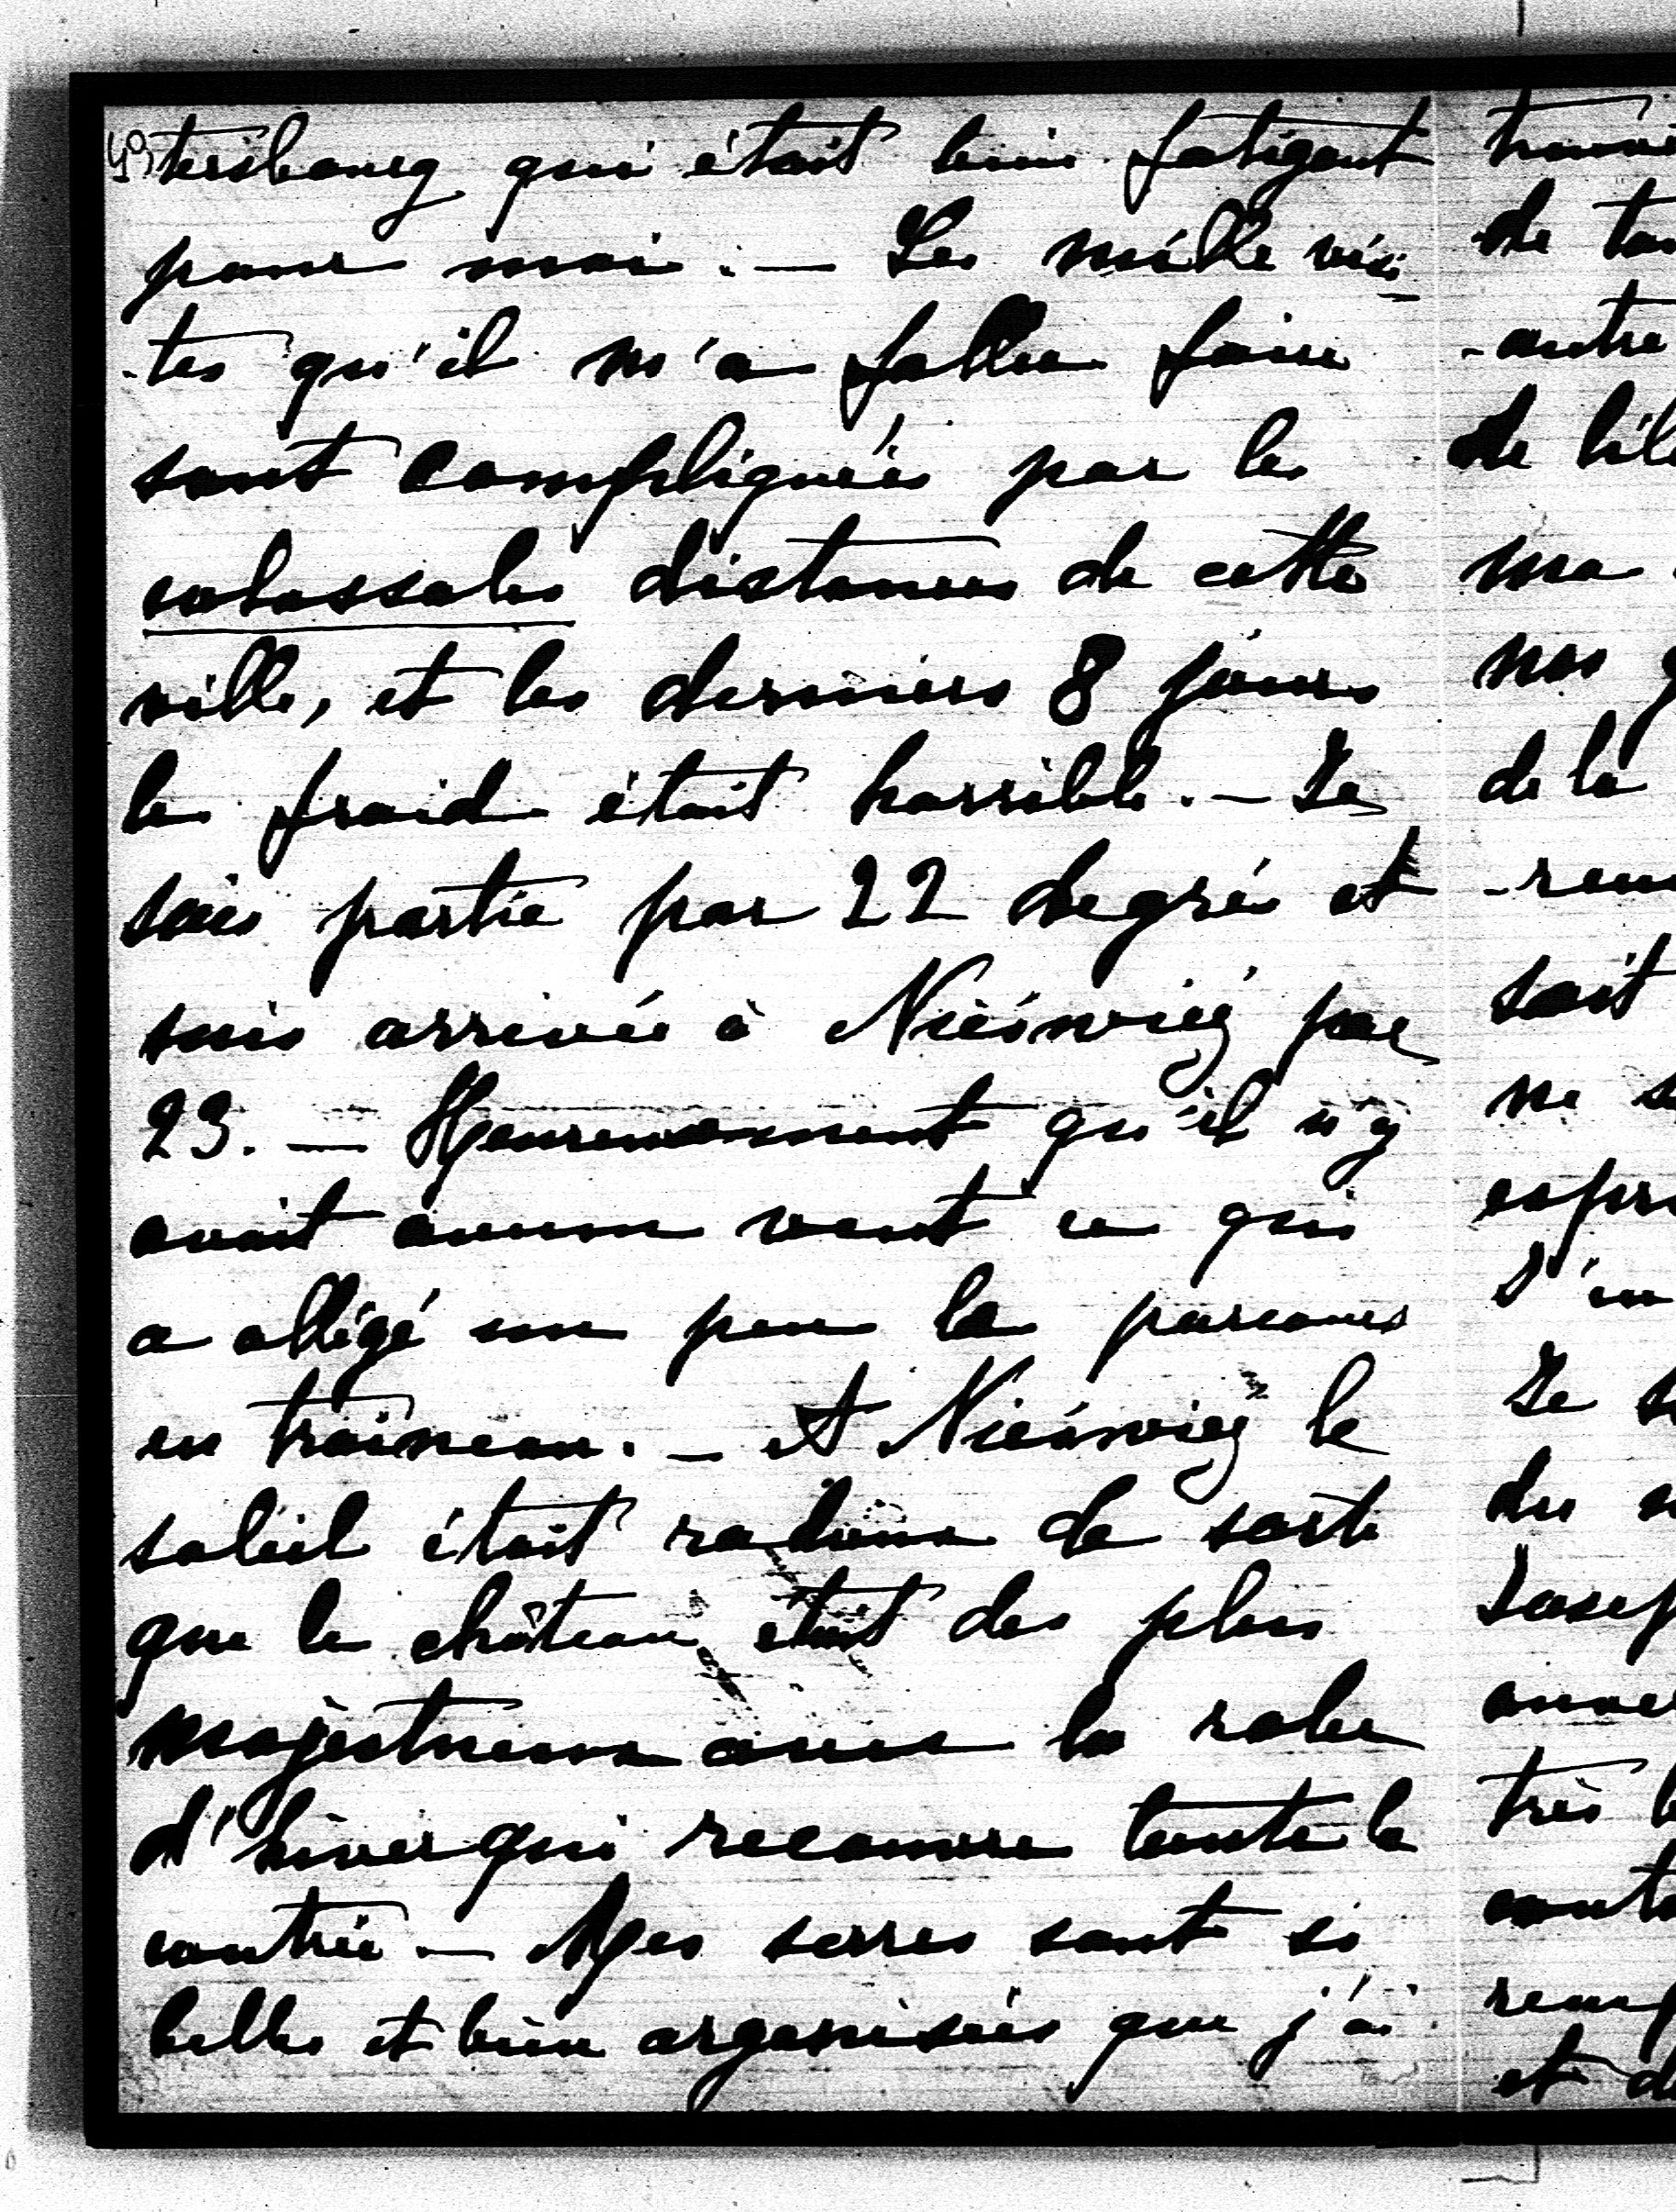 49) tersbourg qui était bien fatigant
pour moi. — Les mille visi-
-tes qu'il m'a fallu faire
sont compliquées par les
colossales distances de cette
ville, et les derniers 8 jours
le froid était horrible. — Je
suis partie par 22 degrés et
suis arrivée à Nieświez par
23. — Heureusement qu'il n'y
avait aucun vent ce qui
a allégé un peu le parcours
en traineau. — A Nieświez le
soleil était radieux de sorte
que le château était des plus
majestueux avec la robe
d'hiver qui recouvre toute la
contrée — Mes serres sont si
belles et bien organisées que j'ai
de
-autre
de
ma
nos
de la
soit
ne
Je
du
très
et